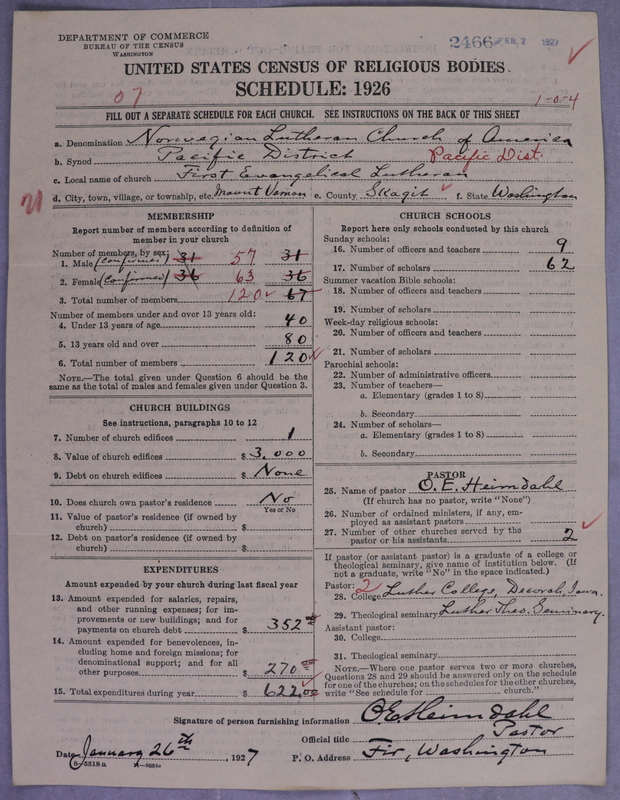 DEPARTMENT OF COMMERCE
BUREAU OF THE CENSUS
WASHINGTON
2466 FEB. 2 1927
UNITED STATES CENSUS OF RELIGIOUS BODIES
SCHEDULE: 1926
07
1-0-4
FILL OUT A SEPARATE SCHEDULE FOR EACH CHURCH. SEE INSTRUCTIONS ON THE BACK OF THIS SHEET
a. Denomination Norwegian Lutheran Church of America
b. Synod Pacific District Pacific Dist.
c. Local name of church First Evangelical Lutheran
d. City, town, village, or township, etc. Mount Vernon e. County Skagit f. State Washington
21
MEMBERSHIP
Report number of members according to definition of
member in your church
Number of members, by sex:
1. Male (confirmed) 31 57 31
2. Female (confirmed) 36 63 36
3. Total number of members 120 67
Number of members under and over 13 years old:
4. Under 13 years of age 40
5. 13 years old and over 80
6. Total number of members 120
NOTE.—The total given under Question 6 should be the
same as the total of males and females given under Question 3.
CHURCH BUILDINGS
See instructions, paragraphs 10 to 12
7. Number of church edifices 1
8. Value of church edifices $ 3.000
9. Debt on church edifices $ None
10. Does church own pastor's residence No
Yes or No
11. Value of pastor's residence (if owned by
church) $
12. Debt on pastor's residence (if owned by
church) $
EXPENDITURES
Amount expended by your church during last fiscal year
13. Amount expended for salaries, repairs,
and other running expenses; for im-
provements or new buildings; and for
payments on church debt $ 352 00
14. Amount expended for benevolences, in-
cluding home and foreign missions; for
denominational support; and for all
other purposes $ 270 00
15. Total expenditures during year $ 622.00
CHURCH SCHOOLS
Report here only schools conducted by this church
Sunday schools:
16. Number of officers and teachers 9
17. Number of scholars 62
Summer vacation Bible schools:
18. Number of officers and teachers
19. Number of scholars
Week-day religious schools:
20. Number of officers and teachers
21. Number of scholars
Parochial schools:
22. Number of administrative officers
23. Number of teachers—
a. Elementary (grades 1 to 8)
b. Secondary
24. Number of scholars—
a. Elementary (grades 1 to 8)
b. Secondary
PASTOR
25. Name of pastor O. E. Heimdahl
(If church has no pastor, write "None")
26. Number of ordained ministers, if any, em-
ployed as assistant pastors
27. Number of other churches served by the
pastor or his assistants 2
If pastor (or assistant pastor) is a graduate of a college or
theological seminary, give name of institution below. (If
not a graduate, write "No" in the space indicated.)
Pastor: 2
28. College Luther College, Decorah, Iowa.
29. Theological seminary Luther Theo. Seminary.
Assistant pastor:
30. College
31. Theological seminary
NOTE.—Where one pastor serves two or more churches,
Questions 28 and 29 should be answered only on the schedule
for one of the churches; on the schedules for the other churches,
write "See schedule for church."
Signature of person furnishing information O. E. Heimdahl
Official title Pastor
Date January 26th, 1927 P. O. Address Fir, Washington